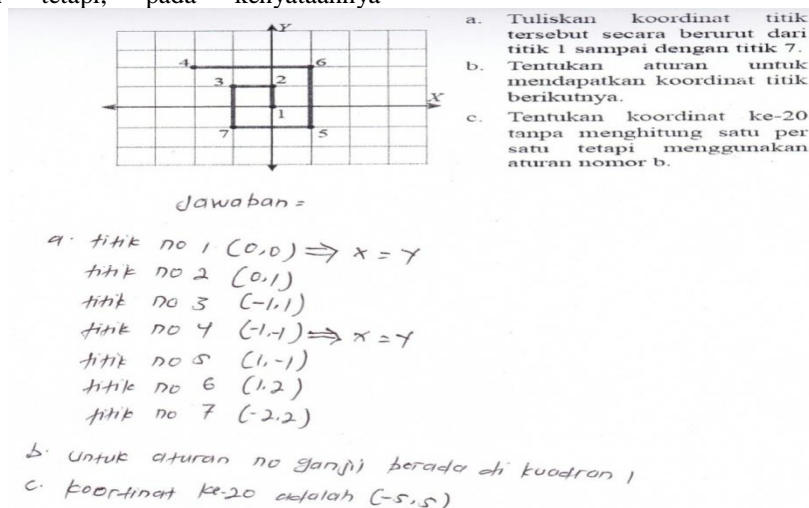 tetapi, pada kenyataannya
Y
4
6
3
2
X
1
7
5
a. Tuliskan koordinat titik
tersebut secara berurut dari
titik 1 sampai dengan titik 7.
b. Tentukan aturan untuk
mendapatkan koordinat titik
berikutnya.
c. Tentukan koordinat ke-20
tanpa menghitung satu per
satu tetapi menggunakan
aturan nomor b.
Jawaban =
a. titik no 1 (0,0) ⇒ x = Y
titik no 2 (0,1)
titik no 3 (-1,1)
titik no 4 (-1,-1) ⇒ x = Y
titik no 5 (1,-1)
titik no 6 (1,2)
titik no 7 (-2,2)
b. untuk aturan no ganjil berada di kuadran 1
c. koordinat ke-20 adalah (-5,5)